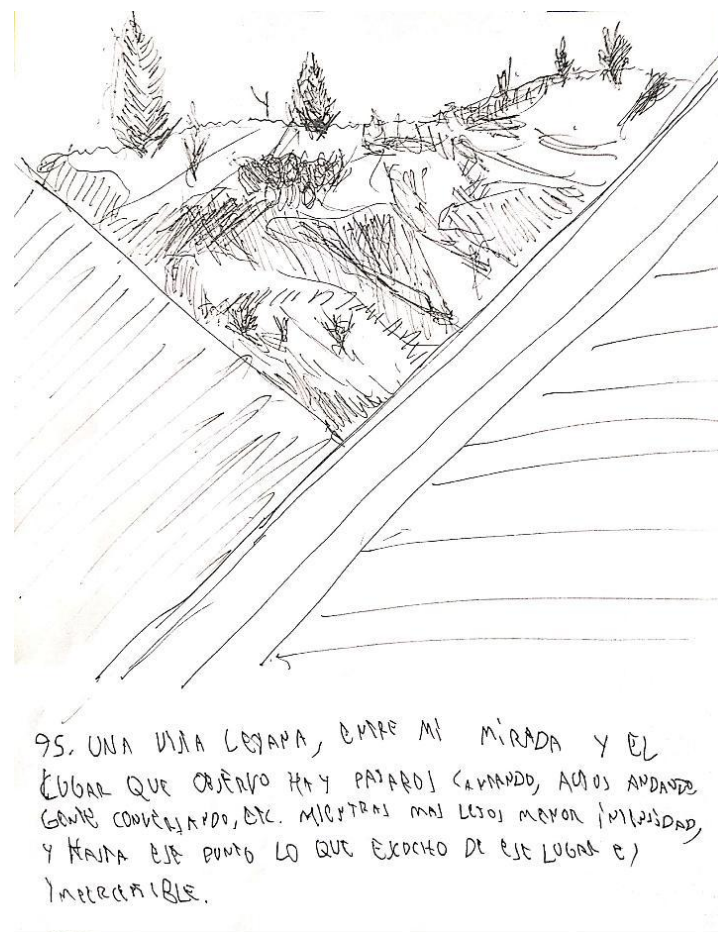 95. UNA VIÑA LEJANA, ENTRE MI MIRADA Y EL
LUGAR QUE OBSERVO HAY PAJAROS CANTANDO, AUTOS ANDANDO,
GENTE CONVERSANDO, ETC. MIENTRAS MAS LEJOS MENOR INTENSIDAD,
Y HASTA ESE PUNTO LO QUE ESCUCHO DE ESE LUGAR ES
IMPERCEPTIBLE.